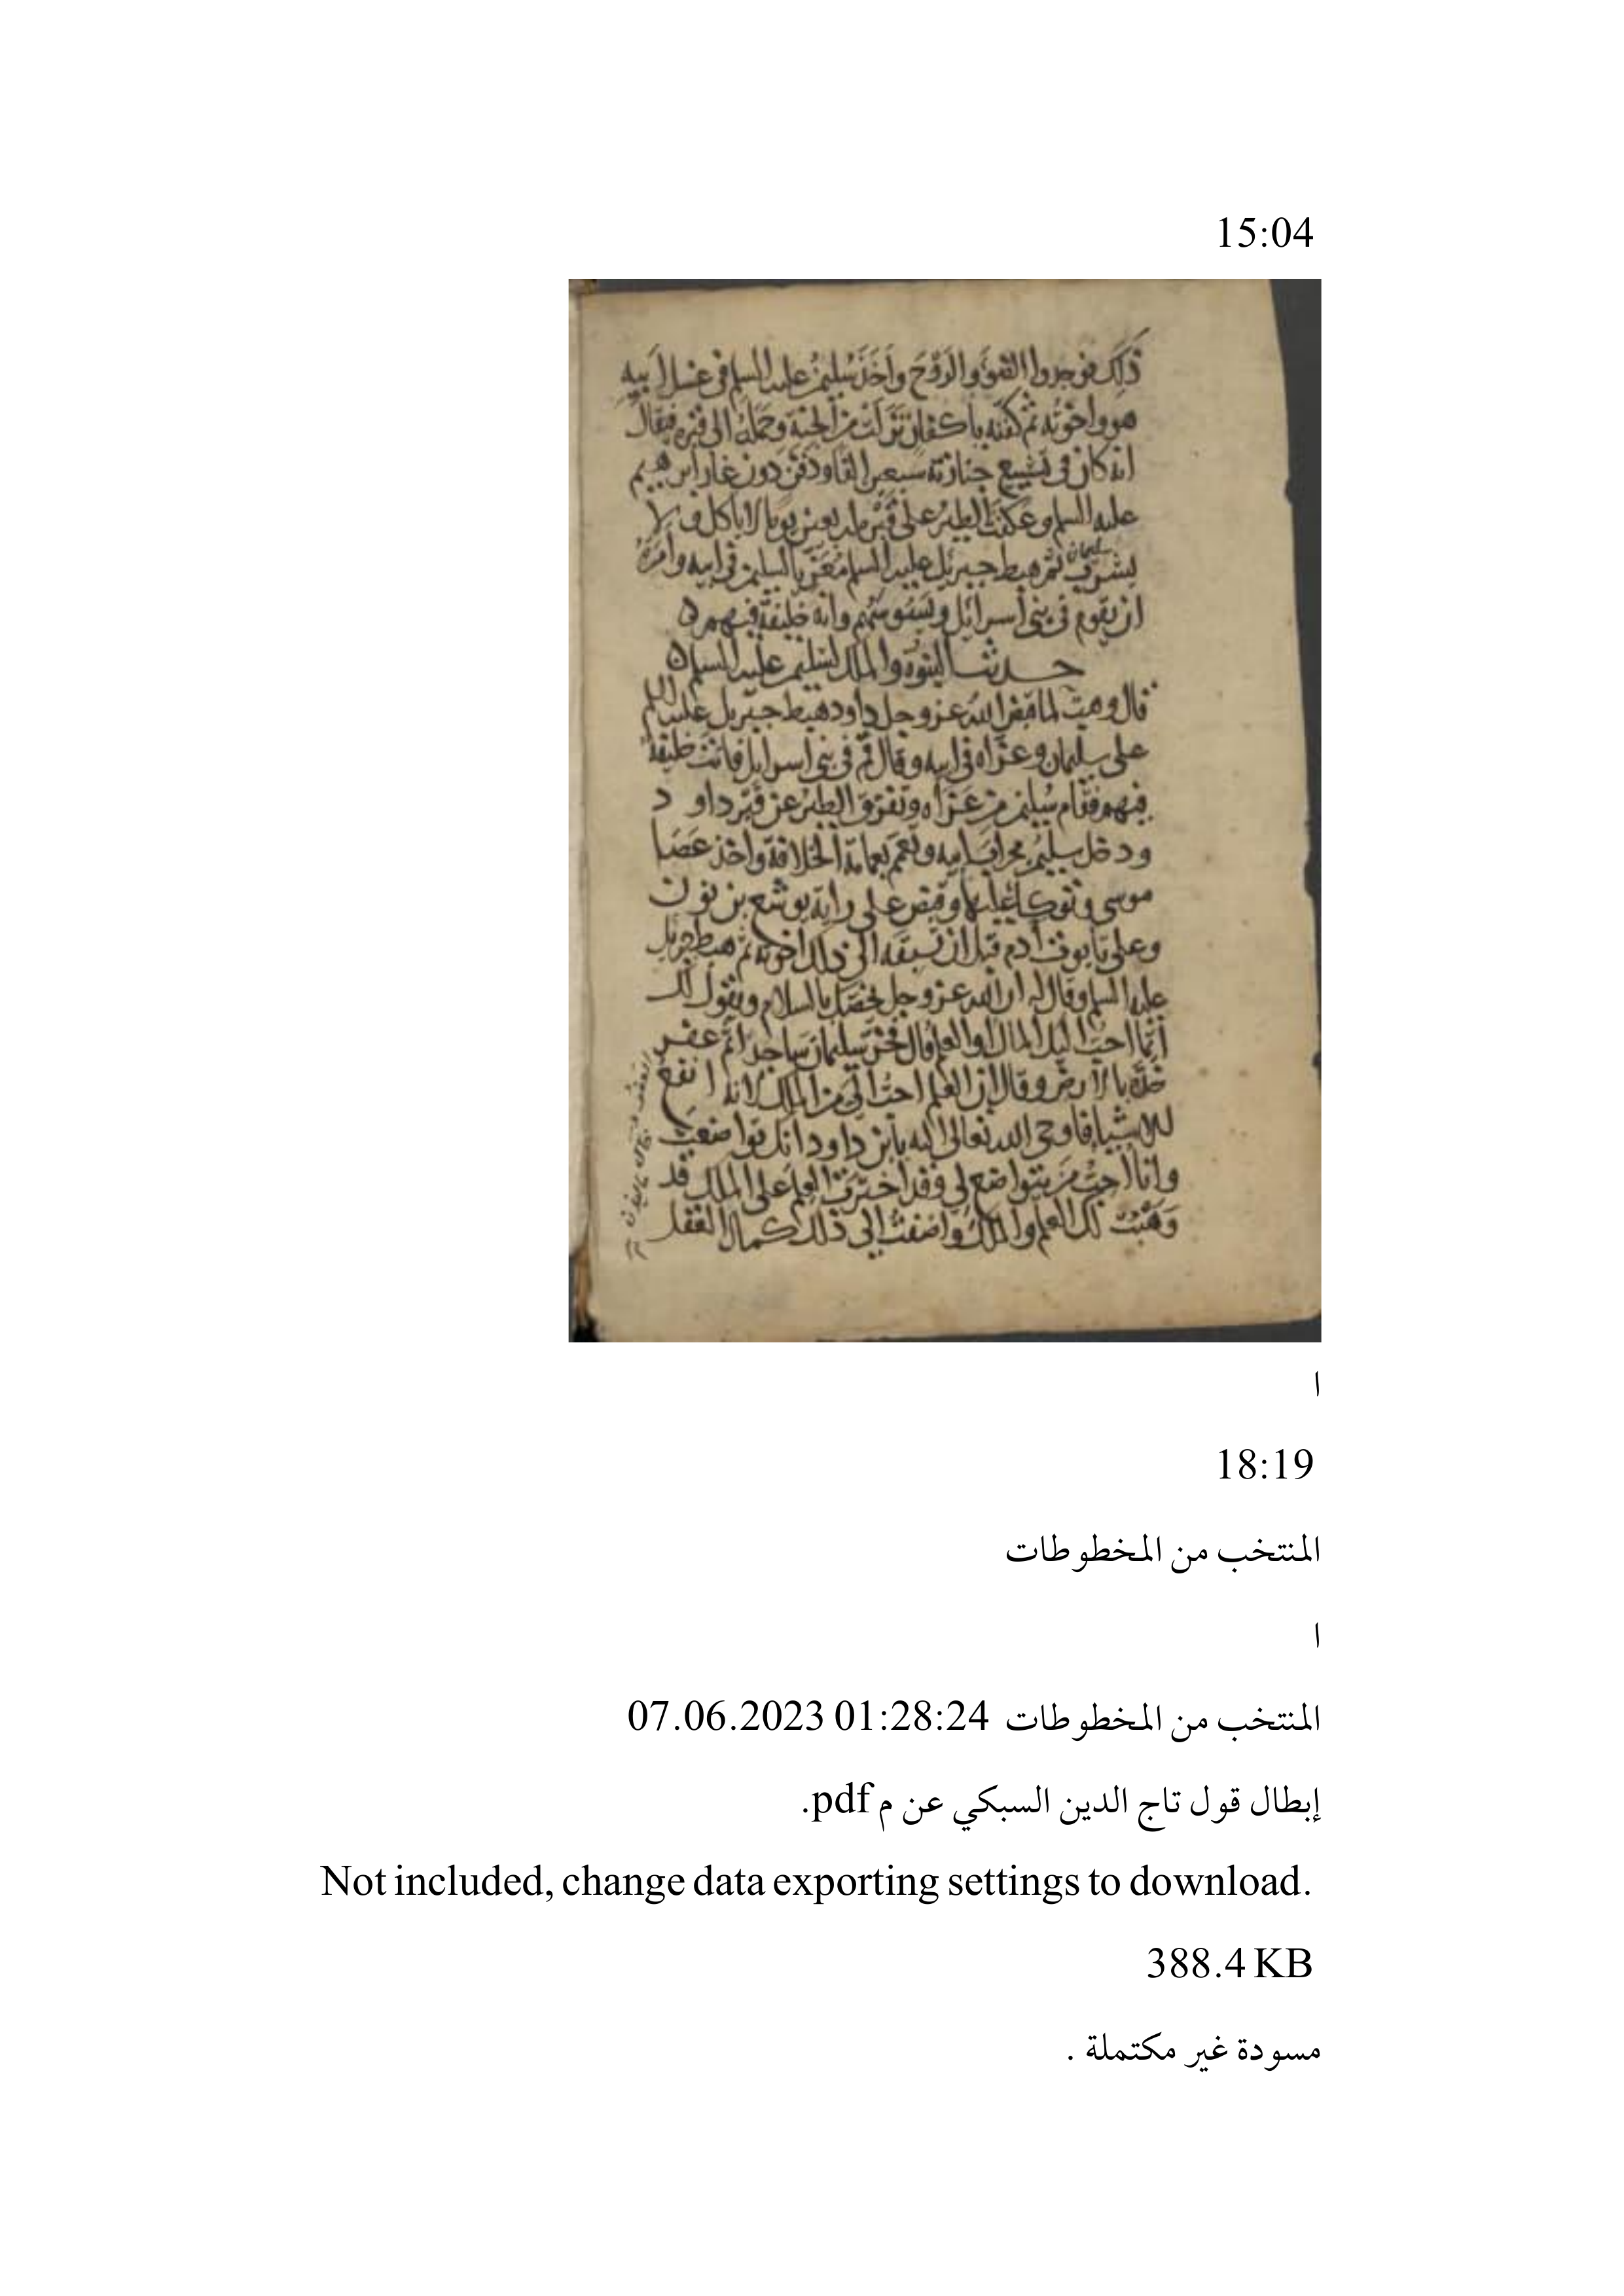 15:04
ذلك فوجدوا القوة والروح واخذ سليمن عليه السلم في غسل ابيه
هو واخوته ثم كفنه باكفان نزلت من الجنة وحمله الى قبره فيقال
انه كان في تشييع جنازته سبعين الفا ودفن دون غار ابرهيم
عليه السلم وعكفت الطير على قبره اربعين يوما لا ياكل ولا
يشرب ثم هبط جبريل عليه السلم معزيا لسليمن في ابيه وامره
سليمان
ان يقوم في بني اسرائيل وانه خليفة فيهم
حديث النبوة والملك لسليمن عليه السلم
قال وهب لما قبض الله عز وجل داود هبط جبريل عليه السلم
على سليمان وعزاه في ابيه وقال قم في بني اسرايل فانت خليفة
فيهم فقام سليمن من عزاه وتفرق الطير عن قبر داود
ودخل سليمن محراب ابيه وتعمم بعمامة الخلافة واخذ عصا
موسى وتوكا عليها وقبض على راية يوشع بن نون
وعلى تابوت ادم قبل ان تسبقه الى ذلك اخوته ثم هبط جبريل
عليه السلم وقال له ان الله عز وجل يخصك بالسلام ويقول لك
ايما احب اليك المال او العلم قال فخر سليمان ساجدا ثم عفر
خده بالارض وقال ان العلم احب الي من الملك لانه انفع
للاشيا فاوحى الله تعالى اليه يابن داود انك تواضعت
وانا احب من يتواضع لي وقد اخترت العلم على الملك قد
وهبت لك العلم والملك واضفت الى ذلك كمال العقل
ا
18:19
المنتخب من المخطوطات
ا
المنتخب من المخطوطات 07.06.2023 01:28:24
إبطال قول تاج الدين السبكي عن م pdf.
Not included, change data exporting settings to download.
388.4 KB
مسودة غير مكتملة .